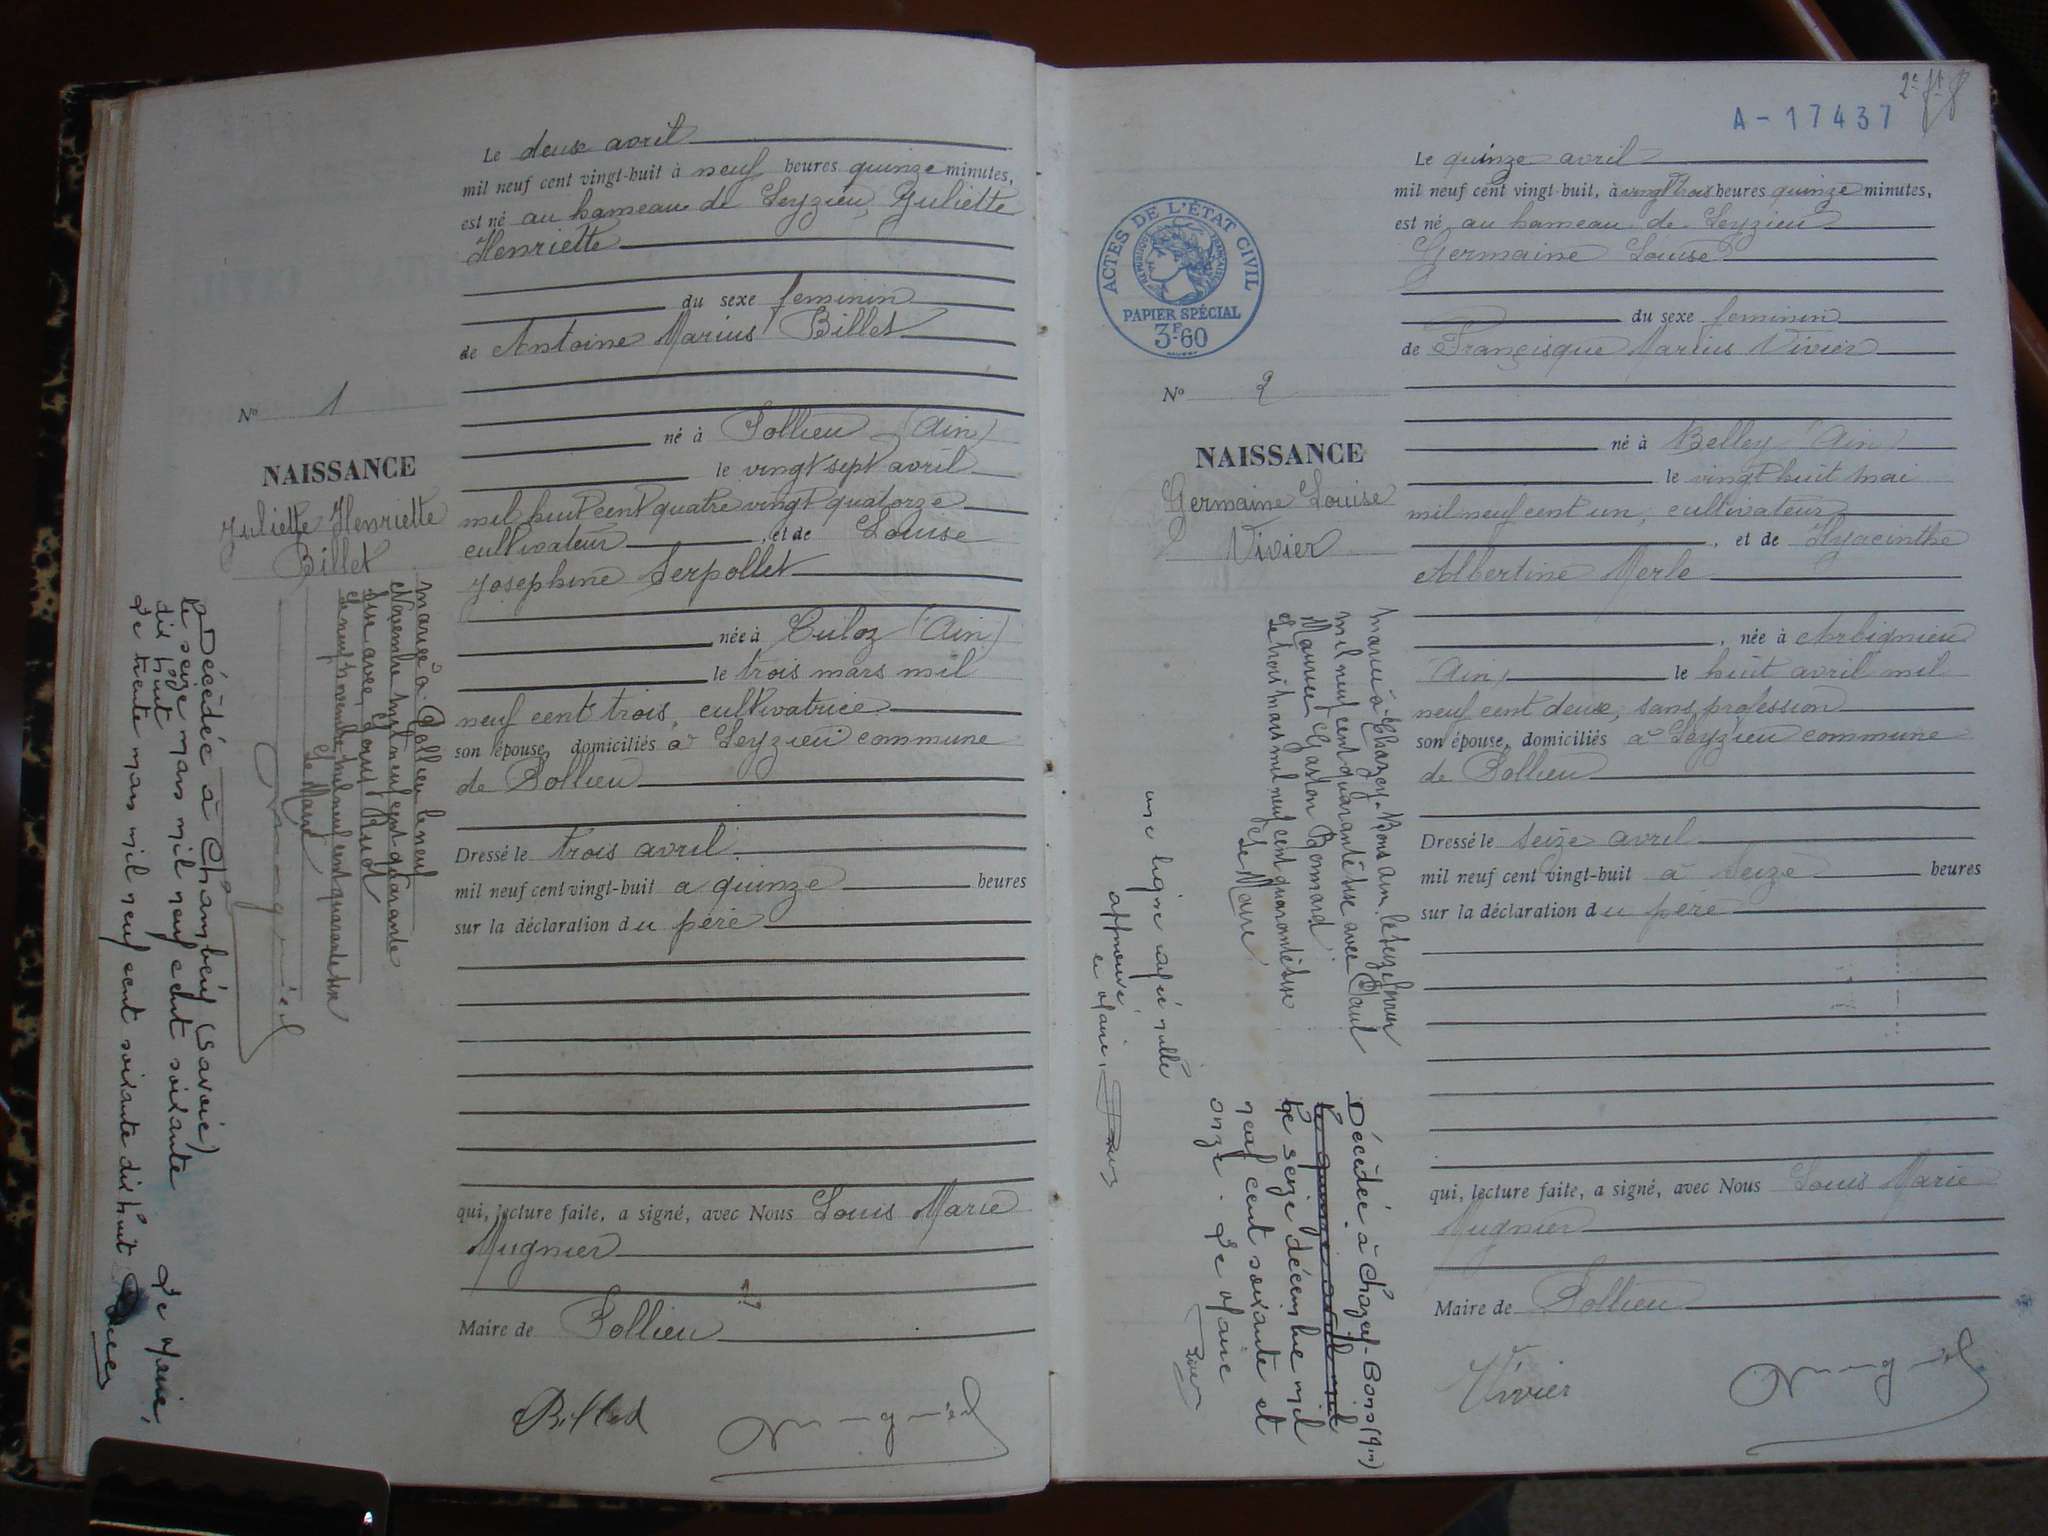 Le deux avril
mil neuf cent vingt-huit à neuf heures quinze minutes,
est né au hameau de Leyzieu, Juliette
Henriette
du sexe feminin
de Antoine Marius Billet
né à Pollieu (Ain)
le vingt sept avril
mil huit cent quatre vingt quatorze
cultivateur, et de Louise
Josephine Serpollet
née à Culoz (Ain)
le trois mars mil
neuf cent trois, cultivatrice
son épouse, domiciliés à Leyzieu commune
de Pollieu
Dressé le trois avril
mil neuf cent vingt-huit à quinze heures
sur la déclaration du père
qui, lecture faite, a signé, avec Nous Louis Marie
Mugnier
Maire de Pollieu
Billet
Nº 1
NAISSANCE
Juliette Henriette
Billet
mariée à Pollieu le neuf
Novembre mil neuf cent quarante
six avec Louis Rud
Le neuf novembre mil neuf cent quarante six
Le Maire
Décédée à Chambéry (Savoie)
le seize mars mil neuf cent soixante
dix huit
Le trente mars mil neuf cent soixante dix huit
Le Maire,
2e ft
A - 17437
ACTES DE L'ÉTAT CIVIL
RÉPUBLIQUE FRANÇAISE
PAPIER SPÉCIAL
3F60
Le quinze avril
mil neuf cent vingt-huit, à vingt trois heures quinze minutes,
est né au hameau de Leyzieu
Germaine Louise
du sexe feminin
de Françisque Marius Vivier
né à Belley (Ain)
le vingt huit mai
mil neuf cent un, cultivateur
, et de Hyacinthe
Albertine Merle
, née à Arbignieu
(Ain) le huit avril mil
neuf cent deux, sans profession
son épouse, domiciliés à Leyzieu commune
de Pollieu
Dressé le seize avril
mil neuf cent vingt-huit à seize heures
sur la déclaration du père
qui, lecture faite, a signé, avec Nous Louis Marie
Mugnier
Maire de Pollieu
Vivier
Nº 2
NAISSANCE
Germaine Louise
Vivier
mariée à Chazey-Bons Ain, le
mil neuf cent quarante six avec Paul
Maurice Gaston Bonnard
Le trois mars mil neuf cent quarante six
Le Maire
une ligne rayée nulle
approuvé
Le Maire,
Décédée à Chazey-Bons (Ain)
le seize décembre mil
neuf cent soixante et
onze. Le Maire